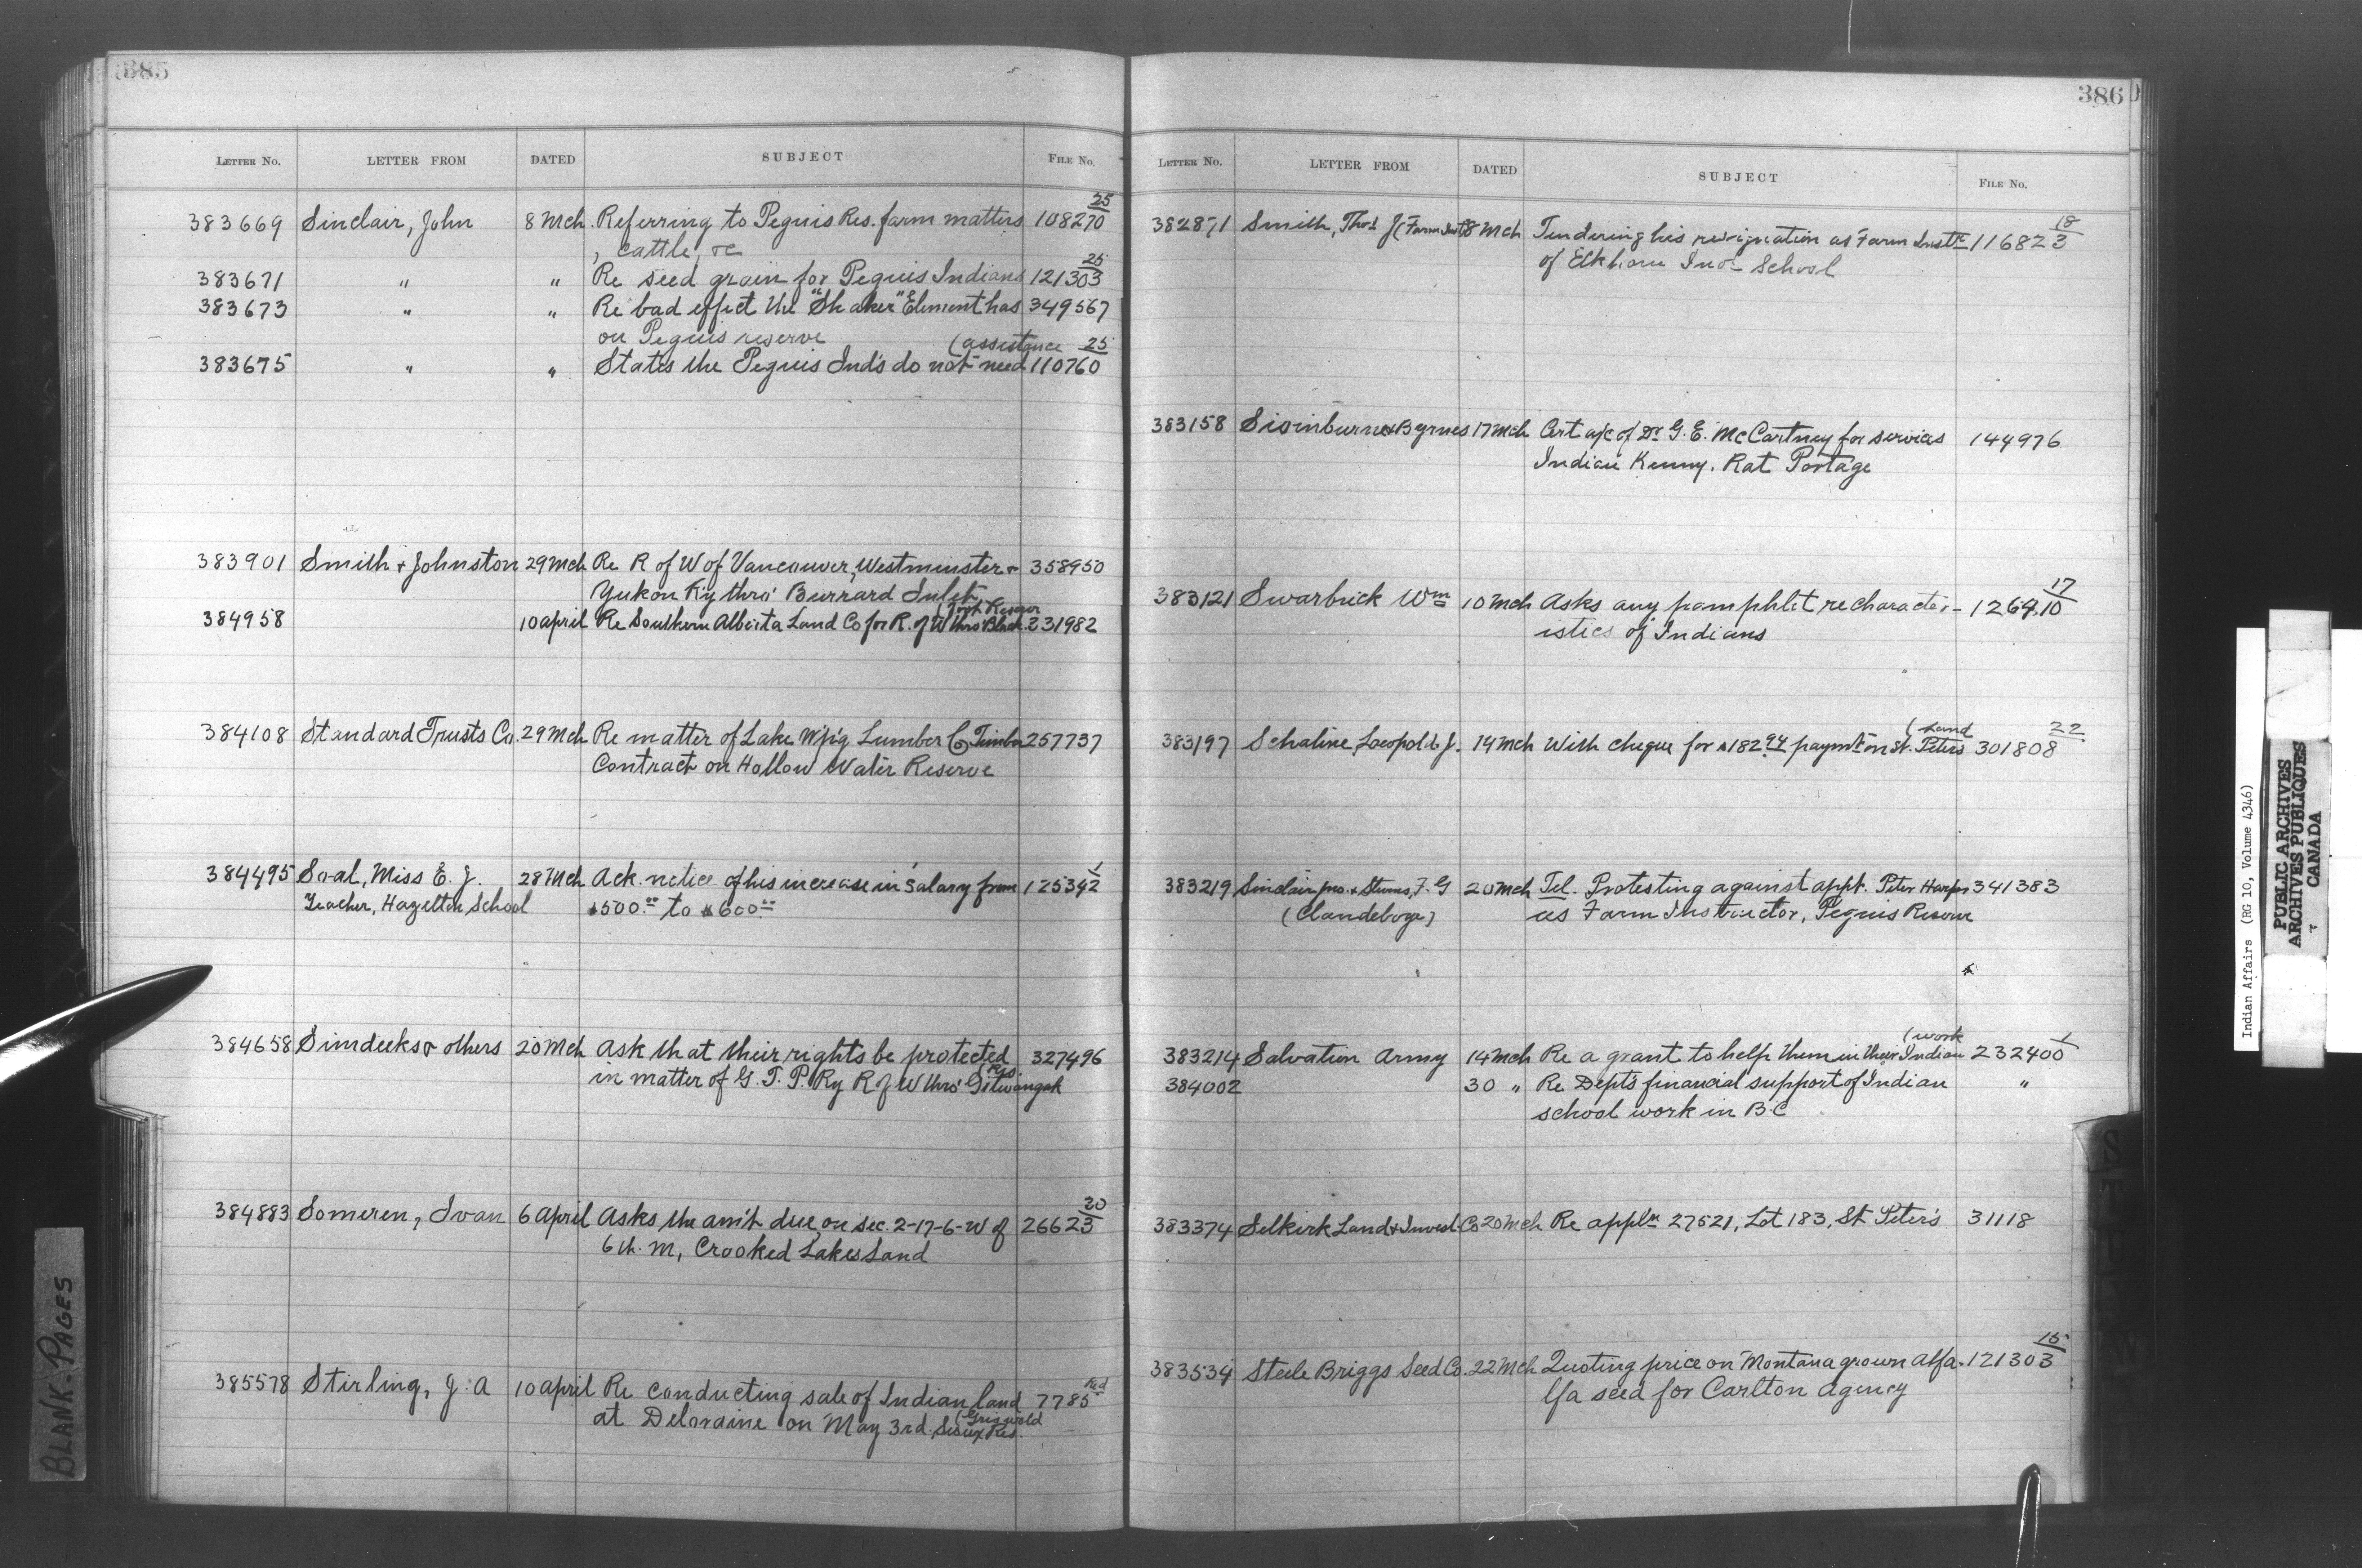 385
LETTER NO. LETTER FROM DATED SUBJECT FILE NO.
25
383669 Sinclair, John 8 Mch. Referring to Peguis Res. farm matters 108270
, cattle, &c
25
383671 " " Re seed grain for Peguis Indians 121303
383673 " " Re bad effect the "Shaker" Element has 349567
on Peguis reserve
(assistance 25
383675 " " States the Peguis Ind's do not need 110760
383901 Smith & Johnston 29 Mch Re R of W of Vancouver, Westminster & 358950
Yukon Ry thro' Burrard Inlet
(foot Reserve
384958 10 april Re Southern Alberta Land Co for R. of W thro' Black. 231982
384108 Standard Trusts Co. 29 Mch Re matter of Lake W'p'g Lumber Co, Timber 257737
Contract on Hollow Water Reserve
1
384495 Soal, Miss E. J. 28 Mch Ack. notice of his increase in salary from 125392
Teacher, Hazelton School $500.00 to $600.00
384658 Simdeeks & others 20 Mch Ask that their rights be protected 327496
(Res.
in matter of G. T. P. Ry R of W thro' Gitwangak
20
384883 Someren, Ivan 6 April Asks the am't due, on sec. 2-17-6-W of 26623
6th. M, Crooked Lakes Land
385578 Stirling, J. A 10 april Re conducting sale of Indian land 7785
at Deloraine on May 3rd. Sioux Res.
(Griswold
386
LETTER NO. LETTER FROM DATED SUBJECT FILE NO.
18
382871 Smith, Thos J (Farm Inst) 8 Mch Tendering his resignation as Farm Instr 116823
of Elkhorn Ind School
383158 Swinburne & Byrnes 17 Mch Cert a/c of Dr G. E. McCartney for services 144976
Indian Kenny, Rat Portage
17
383121 Swarbrick Wm 10 Mch Asks any pamphlet re character- 126410
istics of Indians
(Land 22
383197 Schaline, Leopold J. 14 Mch With cheque for $182.94 paym't on St. Peters 301808
383219 Sinclair, Jno. & Stevens, F. G 20 Mch Tel. Protesting against appt. Peter Harper 341383
(Clandeboye) as Farm Instructor, Peguis Reserve
(work 1
383214 Salvation Army 14 Mch Re a grant to help them in their Indian 232400
384002 30 " Re Depts financial support of Indian "
school work in B.C
383374 Selkirk Land & Invest. Co 20 Mch Re appl'n 27521, Lot 183, St Peter's 31118
15
383534 Steele Briggs Seed Co. 22 Mch Quoting price on Montana grown Alfa- 121303
lfa seed for Carlton Agency
BLANK PAGES
Indian Affairs (RG 10, Volume 4346)
PUBLIC ARCHIVES
ARCHIVES PUBLIQUES
CANADA